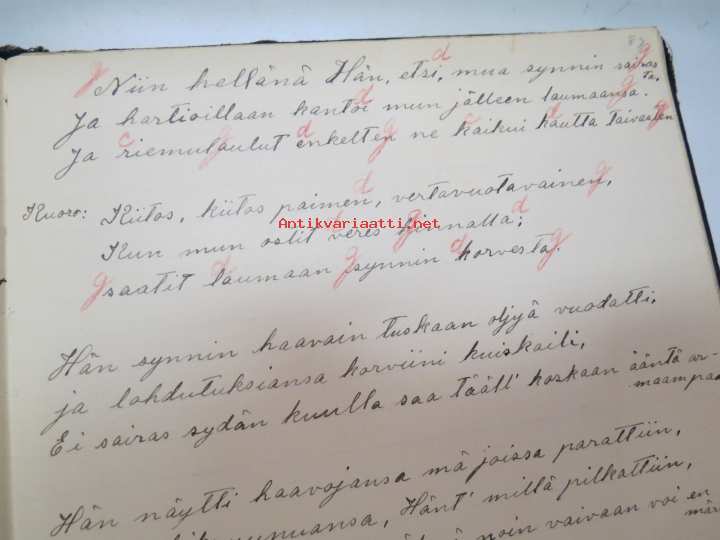 83
g d g
Niin hellänä Hän, etsi, mua synnin sairasta,
d g
Ja hartioillaan kantoi mun jälleen laumaansa.
c g d g c d g
Ja riemulaulut enkelten ne kaikui kautta taivasten
d g
Kuoro: Kiitos, kiitos paimen, vertavuotavainen,
Antikvariaatti.net
g d
Kun mun ostit veres hinnalla;
g d g d g
saatit laumaan synnin korvesta.
Hän synnin haavain tuskaan öljyä vuodatti,
ja lohdutuksiansa korviini kuiskaili,
Ei sairas sydän kuulla saa tääll' koskaan ääntä ar-
maampaa
Hän näytti haavojansa mä joissa parattiin,
Hänt' millä pilkattiin,
noin vaivaan voi en